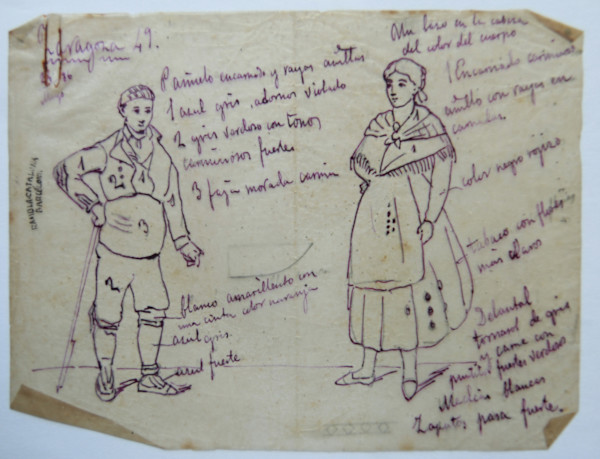 Zaragoza 49.
Pañuelo encarnado y rayas anillos
1 azul gris, adornos violado
2 gris verdoso con tonos
carminosos fuerte.
3 faja morada carmin
blanco amarillento con
una cinta color naranja
azul gris.
azul fuerte
Un lazo en la cabeza
del color del cuerpo
1 Encarnado carminoso
con rayas en
color negro rojizo
tabaco con
más claros
Delantal
de gris
y carne con
fuertes verdoso
Medias blancas
Zapatos para fuerte.